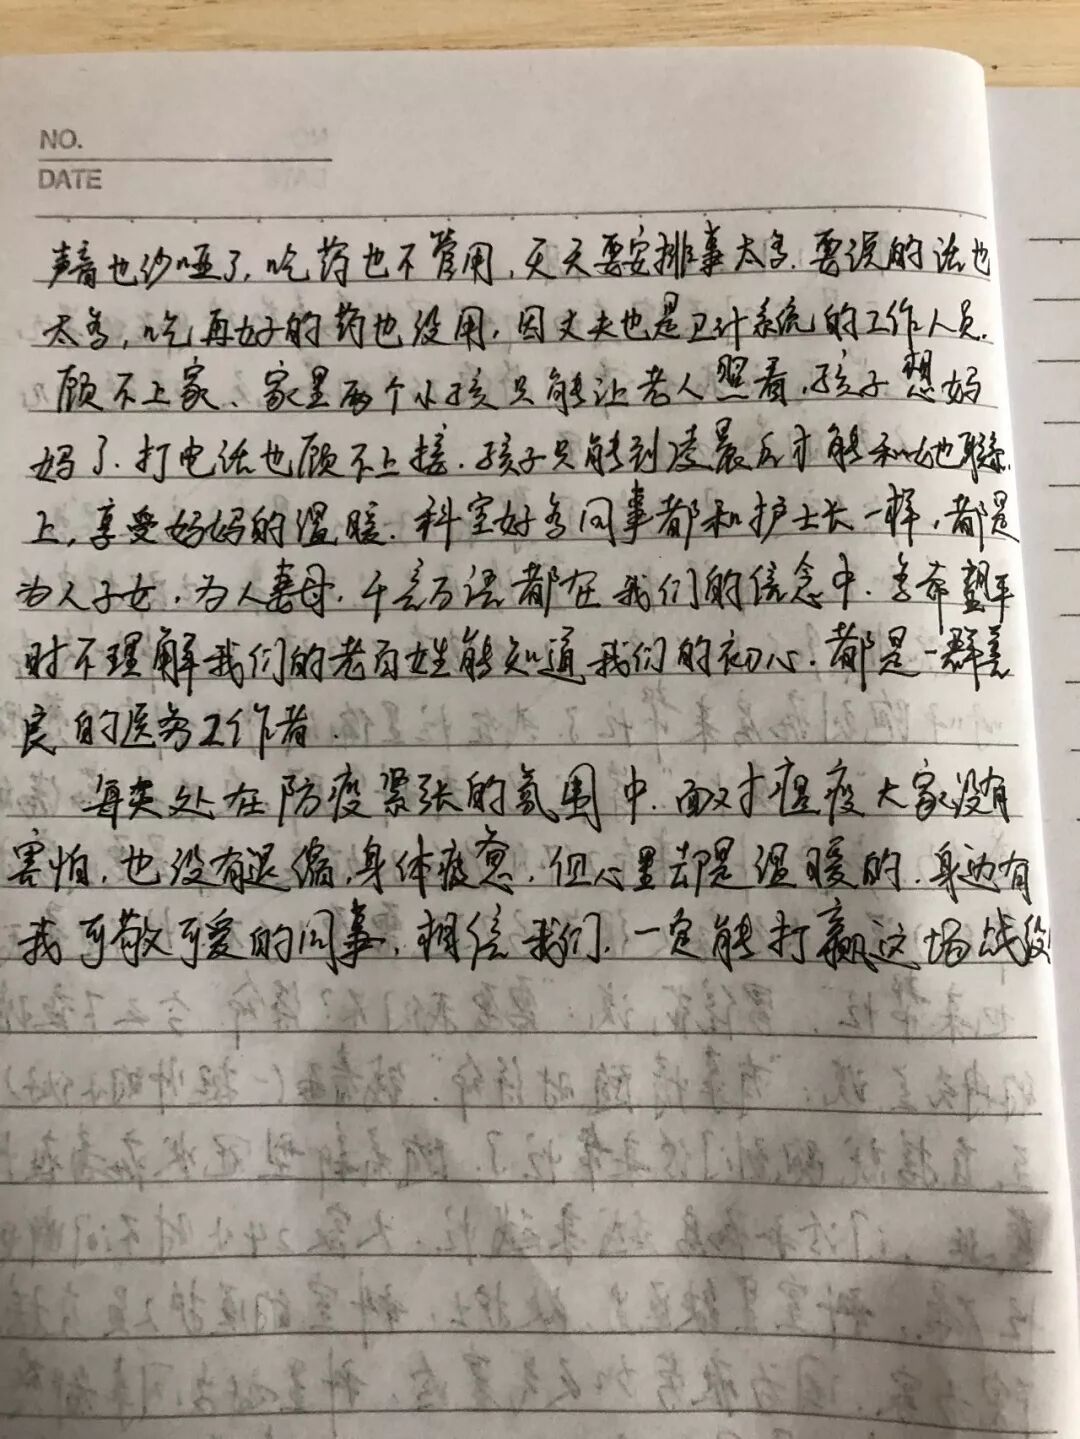 NO.
DATE
声音也沙哑了,吃药也不管用,天天要安排事太多,要说的话也
太多,吃再好的药也没用,因丈夫也是卫计系统的工作人员,
顾不上家、家里两个小孩只能让老人照看,孩子想妈
妈了,打电话也顾不上接,孩子只能到凌晨后才能和她联系
上,享受妈妈的温暖.科室好多同事都和护士长一样,都是
为人子女,为人妻母,千言万语都在我们的信念中,多希望平
时不理解我们的老百姓能知道我们的初心,都是一群善
良的医务工作者.
每天处在防疫紧张的氛围中,面对瘟疫大家没有
害怕,也没有退缩,身体疲惫,但心里却是温暖的,身边有
我可敬可爱的同事,相信我们,一定能打赢这场战役